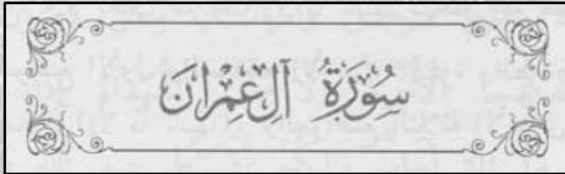 سُورَةُ آلِ عِمْرَانَ